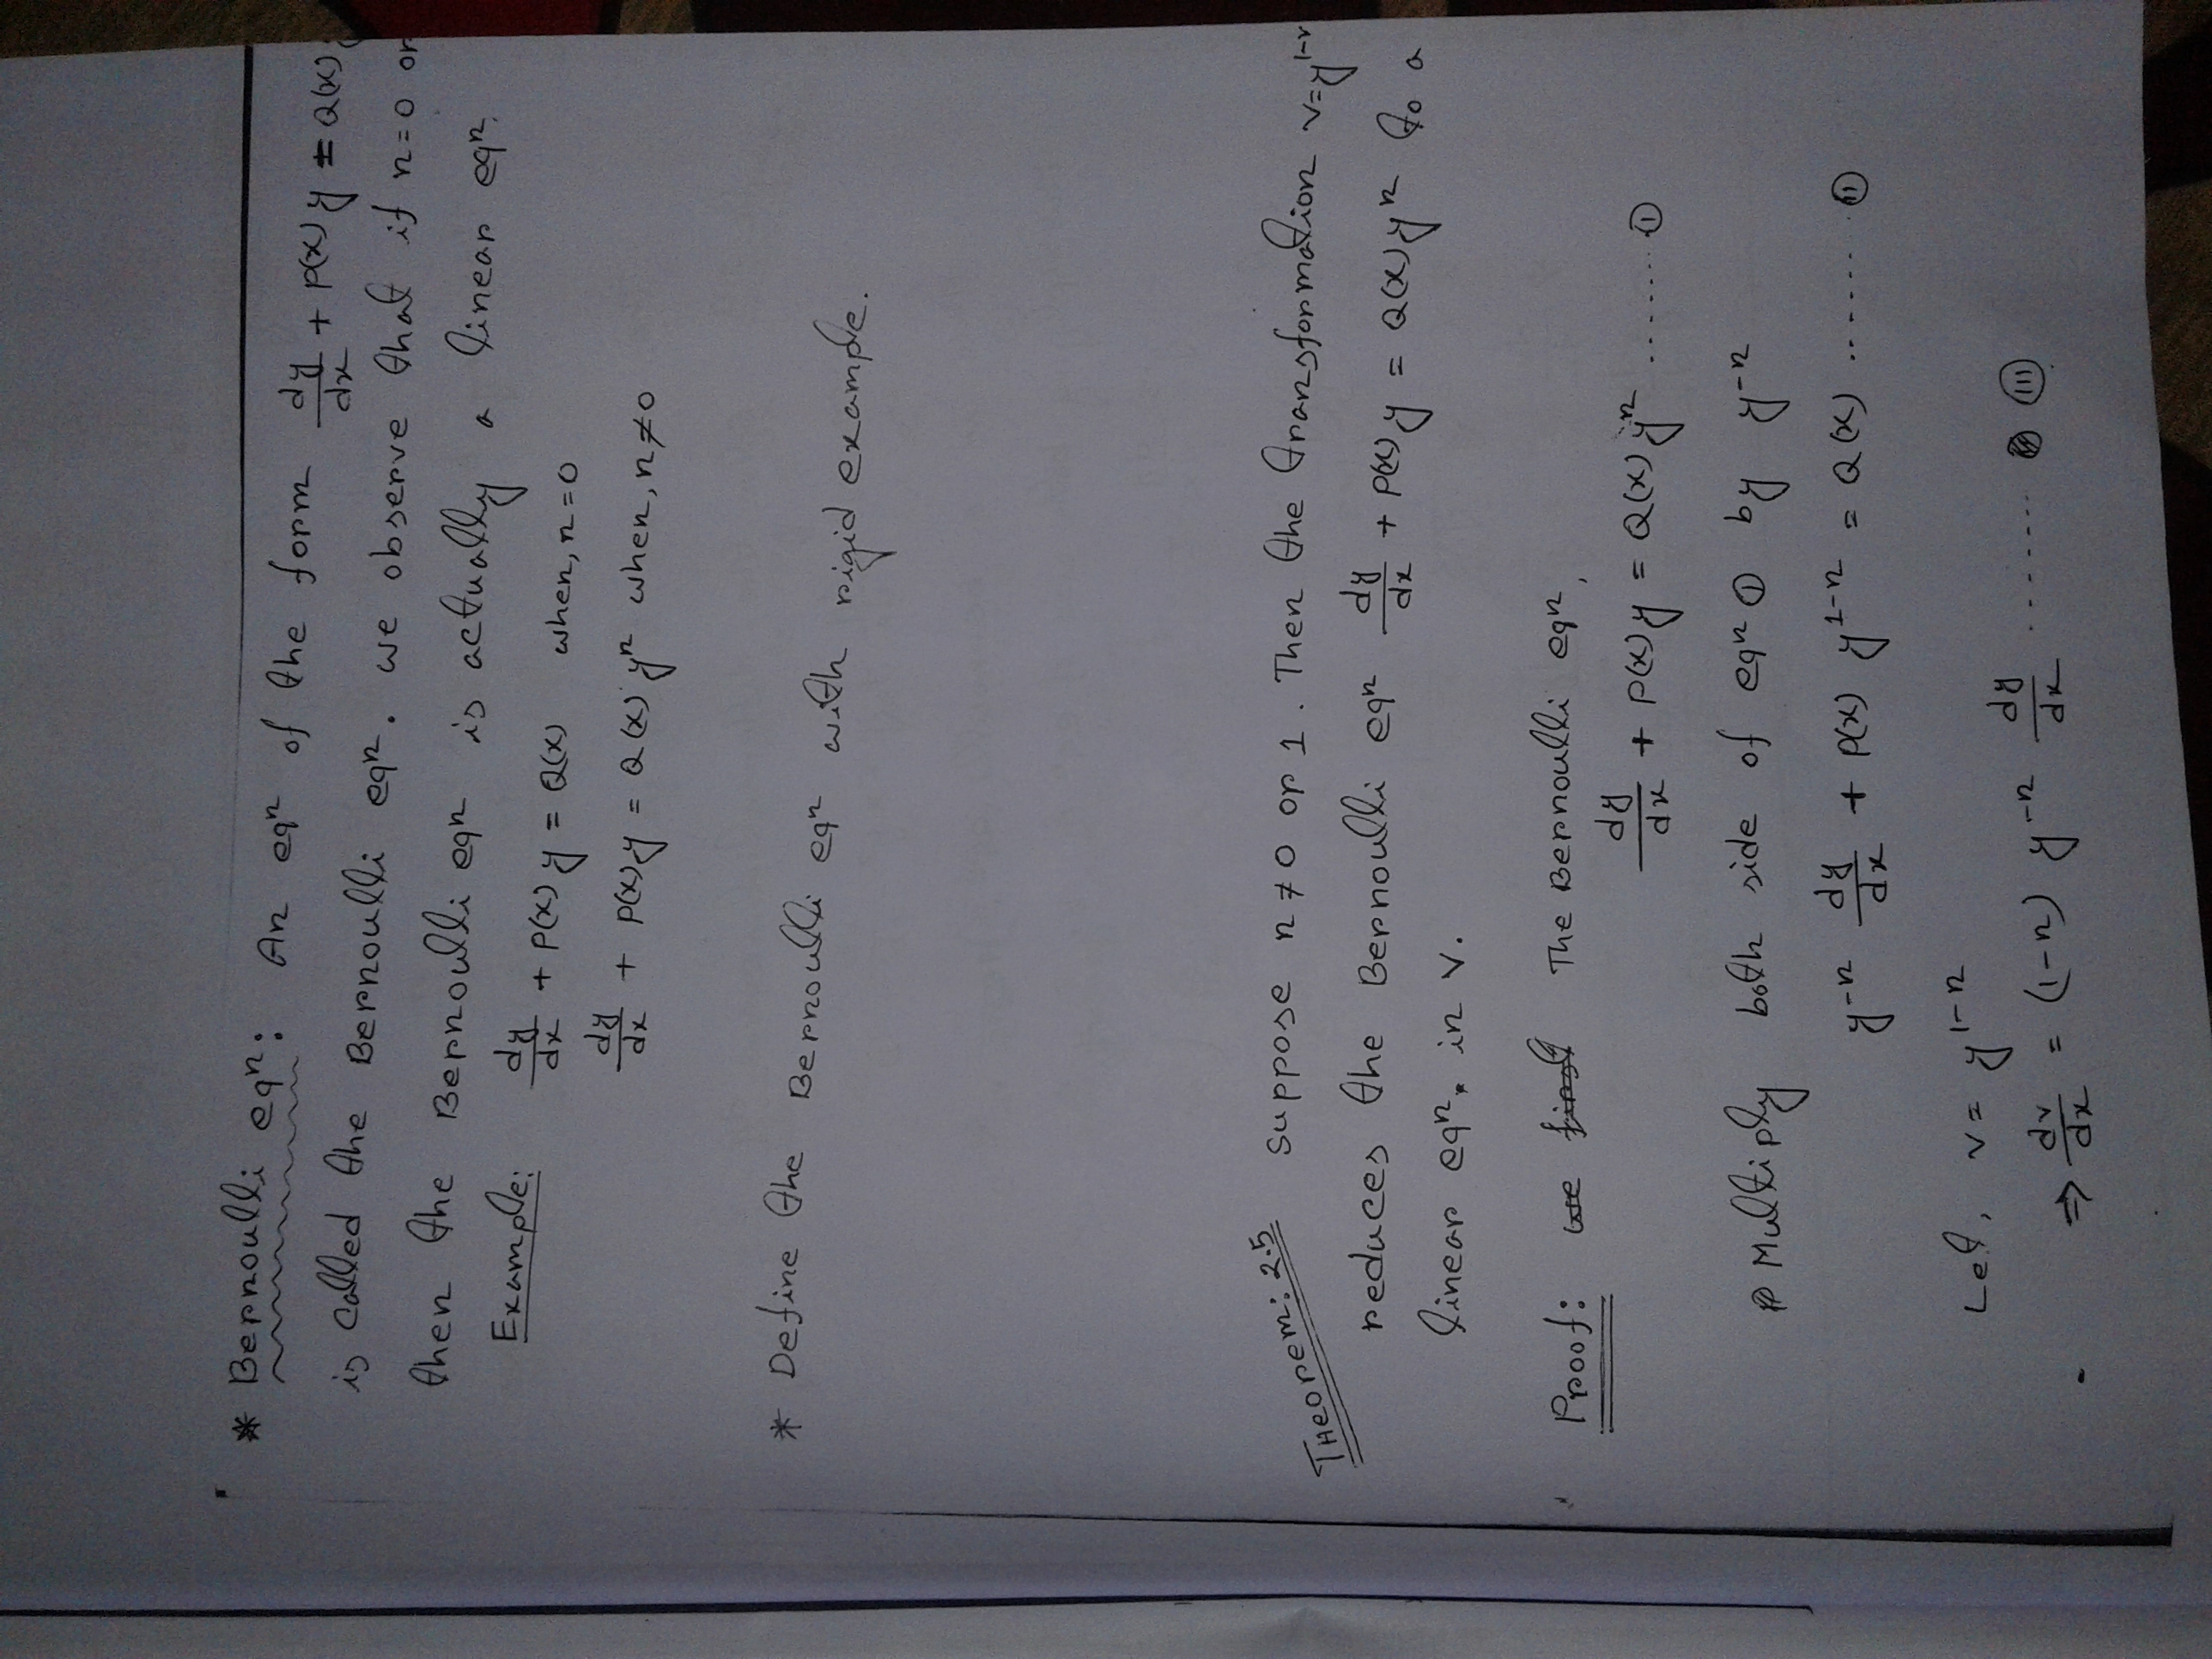 * Bernoulli eqⁿ: An eqⁿ of the form dy/dx + P(x) y = Q(x)
is called the Bernoulli eqⁿ. we observe that if n=0 or
then the Bernoulli eqⁿ is actually a linear eqⁿ.
Example: dy/dx + P(x) y = Q(x) when, n=0
dy/dx + P(x) y = Q(x) yⁿ when, n≠0
* Define the Bernoulli eqⁿ with rigid example.
Theorem: 2.5 Suppose n≠0 or 1. Then the transformation v=y¹⁻ⁿ
reduces the Bernoulli eqⁿ dy/dx + P(x) y = Q(x) yⁿ to a
linear eqⁿ. in v.
Proof: we first The Bernoulli eqⁿ,
dy/dx + P(x) y = Q(x) yⁿ ....... (I)
Multiply both side of eqⁿ (I) by y⁻ⁿ
y⁻ⁿ dy/dx + P(x) y¹⁻ⁿ = Q(x) ....... (II)
Let, v = y¹⁻ⁿ
⇒ dv/dx = (1-n) y⁻ⁿ dy/dx ........ (III)